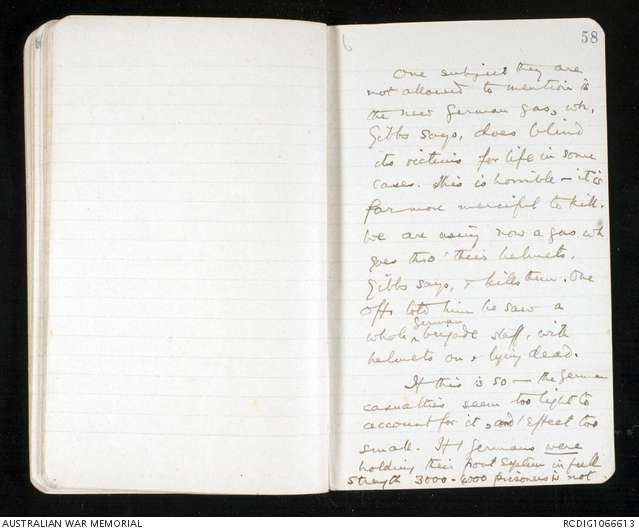 58
One subject they are
not allowed to mention is
the new German gas, wh,
Gibbs says, does blind
its victims for life in some
cases. This is horrible - it is
far more merciful to kill.
We are using now a gas wh
goes thro' their helmets,
Gibbs says, & kills them. One
offr told him he saw a
whole German brigade staff, with
helmets on & lying dead.
If this is so - the German
casualties seem too light to
account for it, and / effect too
small. If / Germans were
holding their front system in full
strength 3000-4000 prisoners is not
AUSTRALIAN WAR MEMORIAL
RCDIG1066613